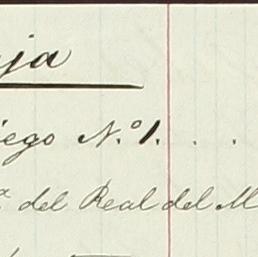 ja
iego N.º 1. . .
ª del Real del M